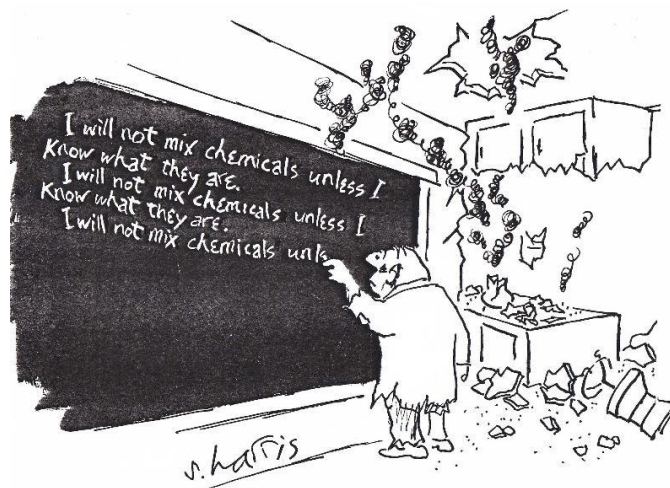 I will not mix chemicals unless I
Know what they are.
I will not mix chemicals unless I
Know what they are.
I will not mix chemicals unls
s. harris